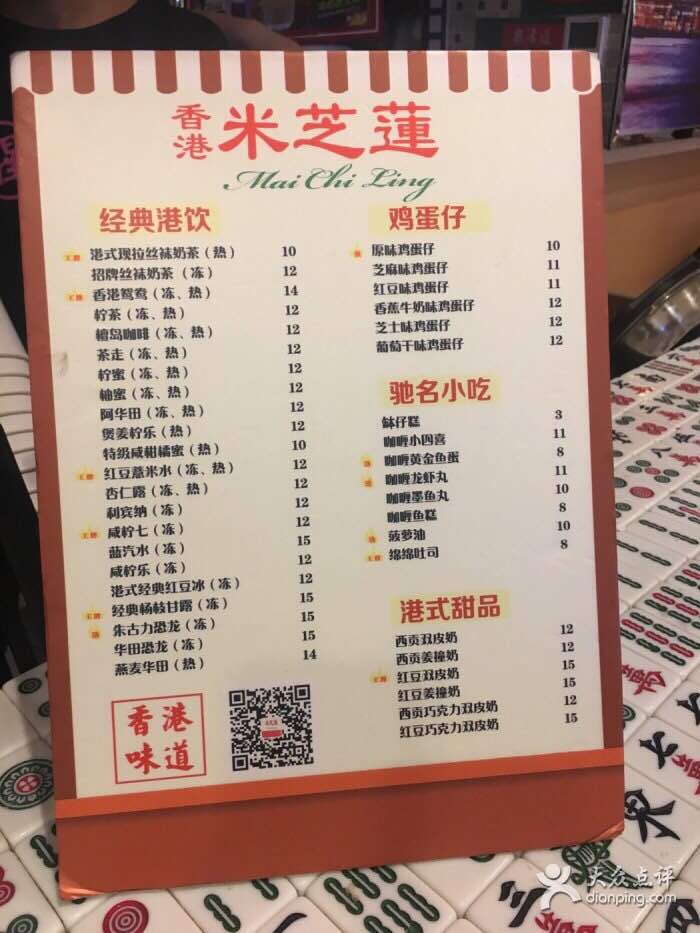 香港 米芝蓮
Mai Chi Ling
经典港饮
王牌 港式现拉丝袜奶茶（热） 10
招牌丝袜奶茶（冻） 12
王牌 香港鸳鸯（冻、热） 14
柠茶（冻、热） 12
檀岛咖啡（冻、热） 12
茶走（冻、热） 12
柠蜜（冻、热） 12
柚蜜（冻、热） 12
阿华田（冻、热） 12
煲姜柠乐（热） 12
特级咸柑橘蜜（热） 10
王牌 红豆薏米水（冻、热） 12
杏仁露（冻、热） 12
利宾纳（冻） 12
王牌 咸柠七（冻） 12
蓝汽水（冻） 15
咸柠乐（冻） 12
港式经典红豆冰（冻） 12
王牌 经典杨枝甘露（冻） 15
朱古力恐龙（冻） 15
华田恐龙（冻） 15
燕麦华田（热） 14
鸡蛋仔
原味鸡蛋仔 10
芝麻味鸡蛋仔 11
红豆味鸡蛋仔 11
香蕉牛奶味鸡蛋仔 12
芝士味鸡蛋仔 12
葡萄干味鸡蛋仔 12
驰名小吃
钵仔糕 3
咖喱小四喜 11
咖喱黄金鱼蛋 8
咖喱龙虾丸 11
咖喱墨鱼丸 10
咖喱鱼糕 8
菠萝油 10
王牌 绵绵吐司 8
港式甜品
西贡双皮奶 12
西贡姜撞奶 12
王牌 红豆双皮奶 15
红豆姜撞奶 15
西贡巧克力双皮奶 12
红豆巧克力双皮奶 15
香港
味道
大众点评
dianping.com